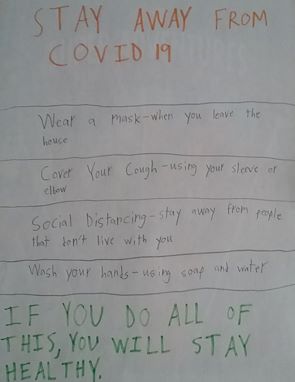 STAY AWAY FROM
COVID 19
Wear a mask-when you leave the
house
Cover Your Cough-using your sleeve or
elbow
Social Distancing-stay away from people
that don't live with you
Wash your hands-using soap and water
IF YOU DO ALL OF
THIS, YOU WILL STAY
HEALTHY.